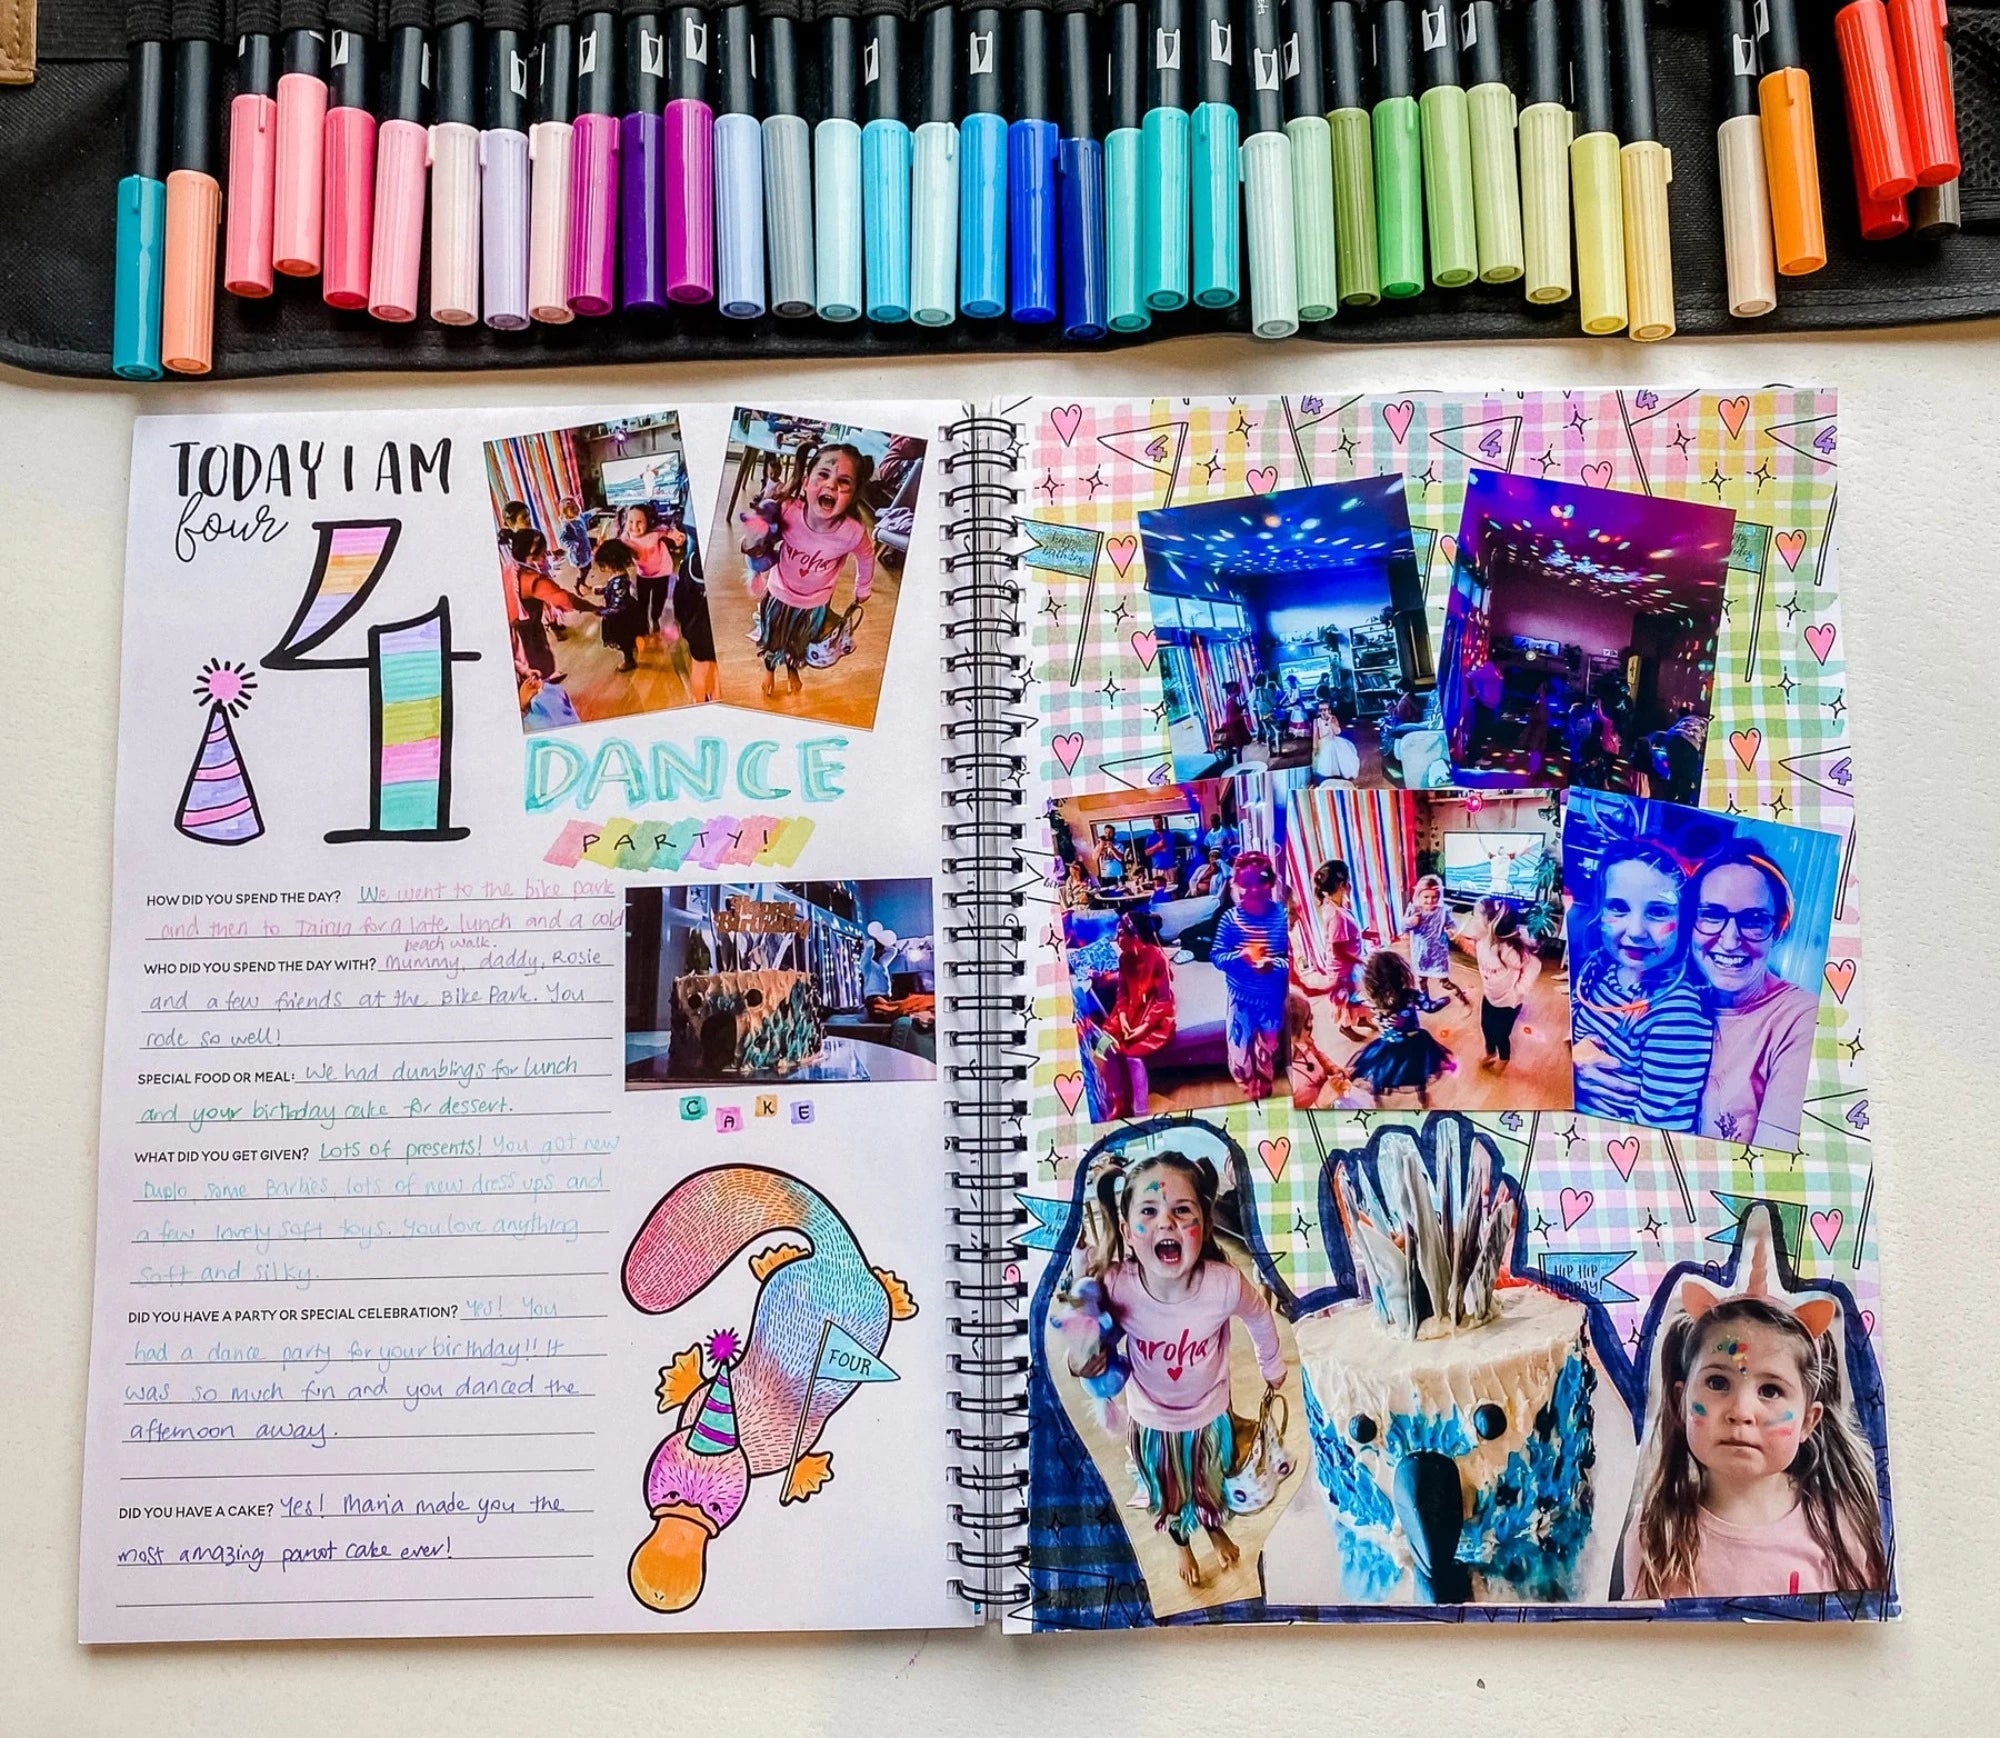 TODAY I AM
four
4
DANCE
PARTY!
HOW DID YOU SPEND THE DAY? We went to the bike park
and then to Tairua for a late lunch and a cold
beach walk.
WHO DID YOU SPEND THE DAY WITH? Mummy, daddy, Rosie
and a few friends at the Bike Park. You
rode so well!
SPECIAL FOOD OR MEAL: We had dumblings for lunch
and your birthday cake for dessert.
WHAT DID YOU GET GIVEN? Lots of presents! You got new
Duplo, some Barbies, lots of new dress ups and
a few lovely soft toys. You love anything
soft and silky.
DID YOU HAVE A PARTY OR SPECIAL CELEBRATION? Yes! You
had a dance party for your birthday!! It
was so much fun and you danced the
afternoon away.
DID YOU HAVE A CAKE? Yes! Maria made you the
most amazing parrot cake ever!
aroha
Happy
Birthday
CAKE
FOUR
4
4
4
4
4
4
happy
birthday
4
4
4
aroha
HIP HIP
HOORAY!